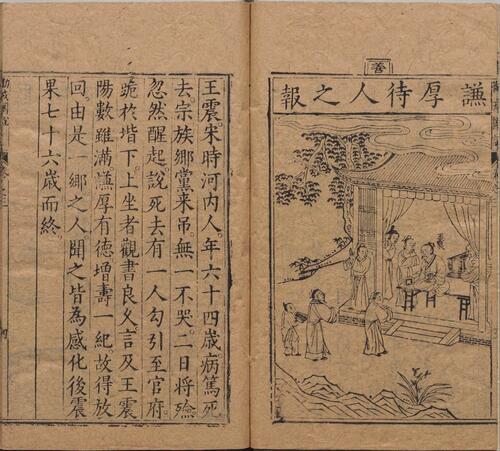 善
謙厚待人之報
王震。宋時河内人。年六十四歲病篤死
去。宗族鄉黨來吊。無一不哭。二日將殮
忽然醒起說死去有一人勾引至官府。
跪於堦下。上坐者觀書良久言及王震
陽數雖滿謙厚有德增壽一紀故得放
回。由是一鄉之人聞之皆為感化後震
果七十六歲而終。